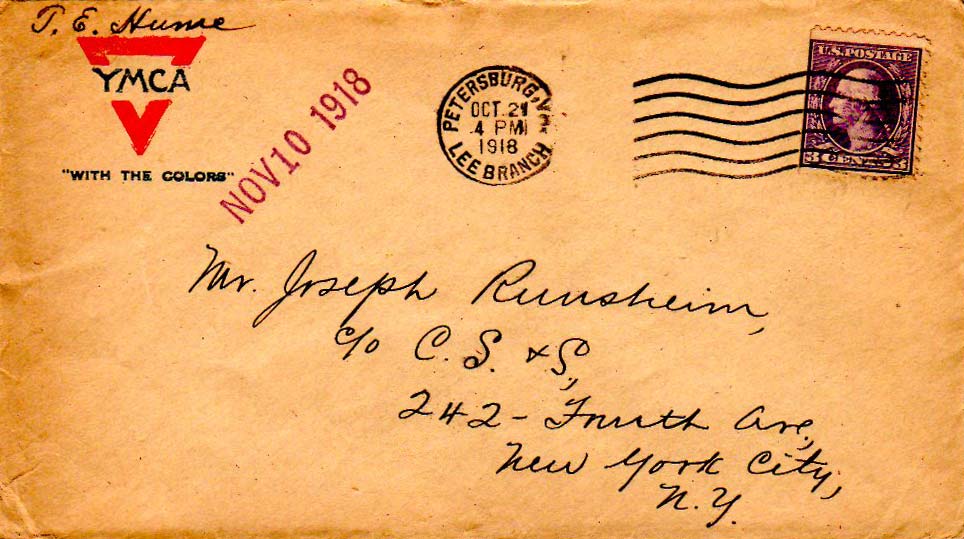 T. E. Hume
YMCA
"WITH THE COLORS"
NOV 10 1918
PETERSBURG, VA.
OCT. 21
4 PM
1918
LEE BRANCH
U.S. POSTAGE
3 CENTS 3
Mr. Joseph Runsheim,
c/o C. S. & S.,
242 - Fourth Ave,
New York City,
N.Y.